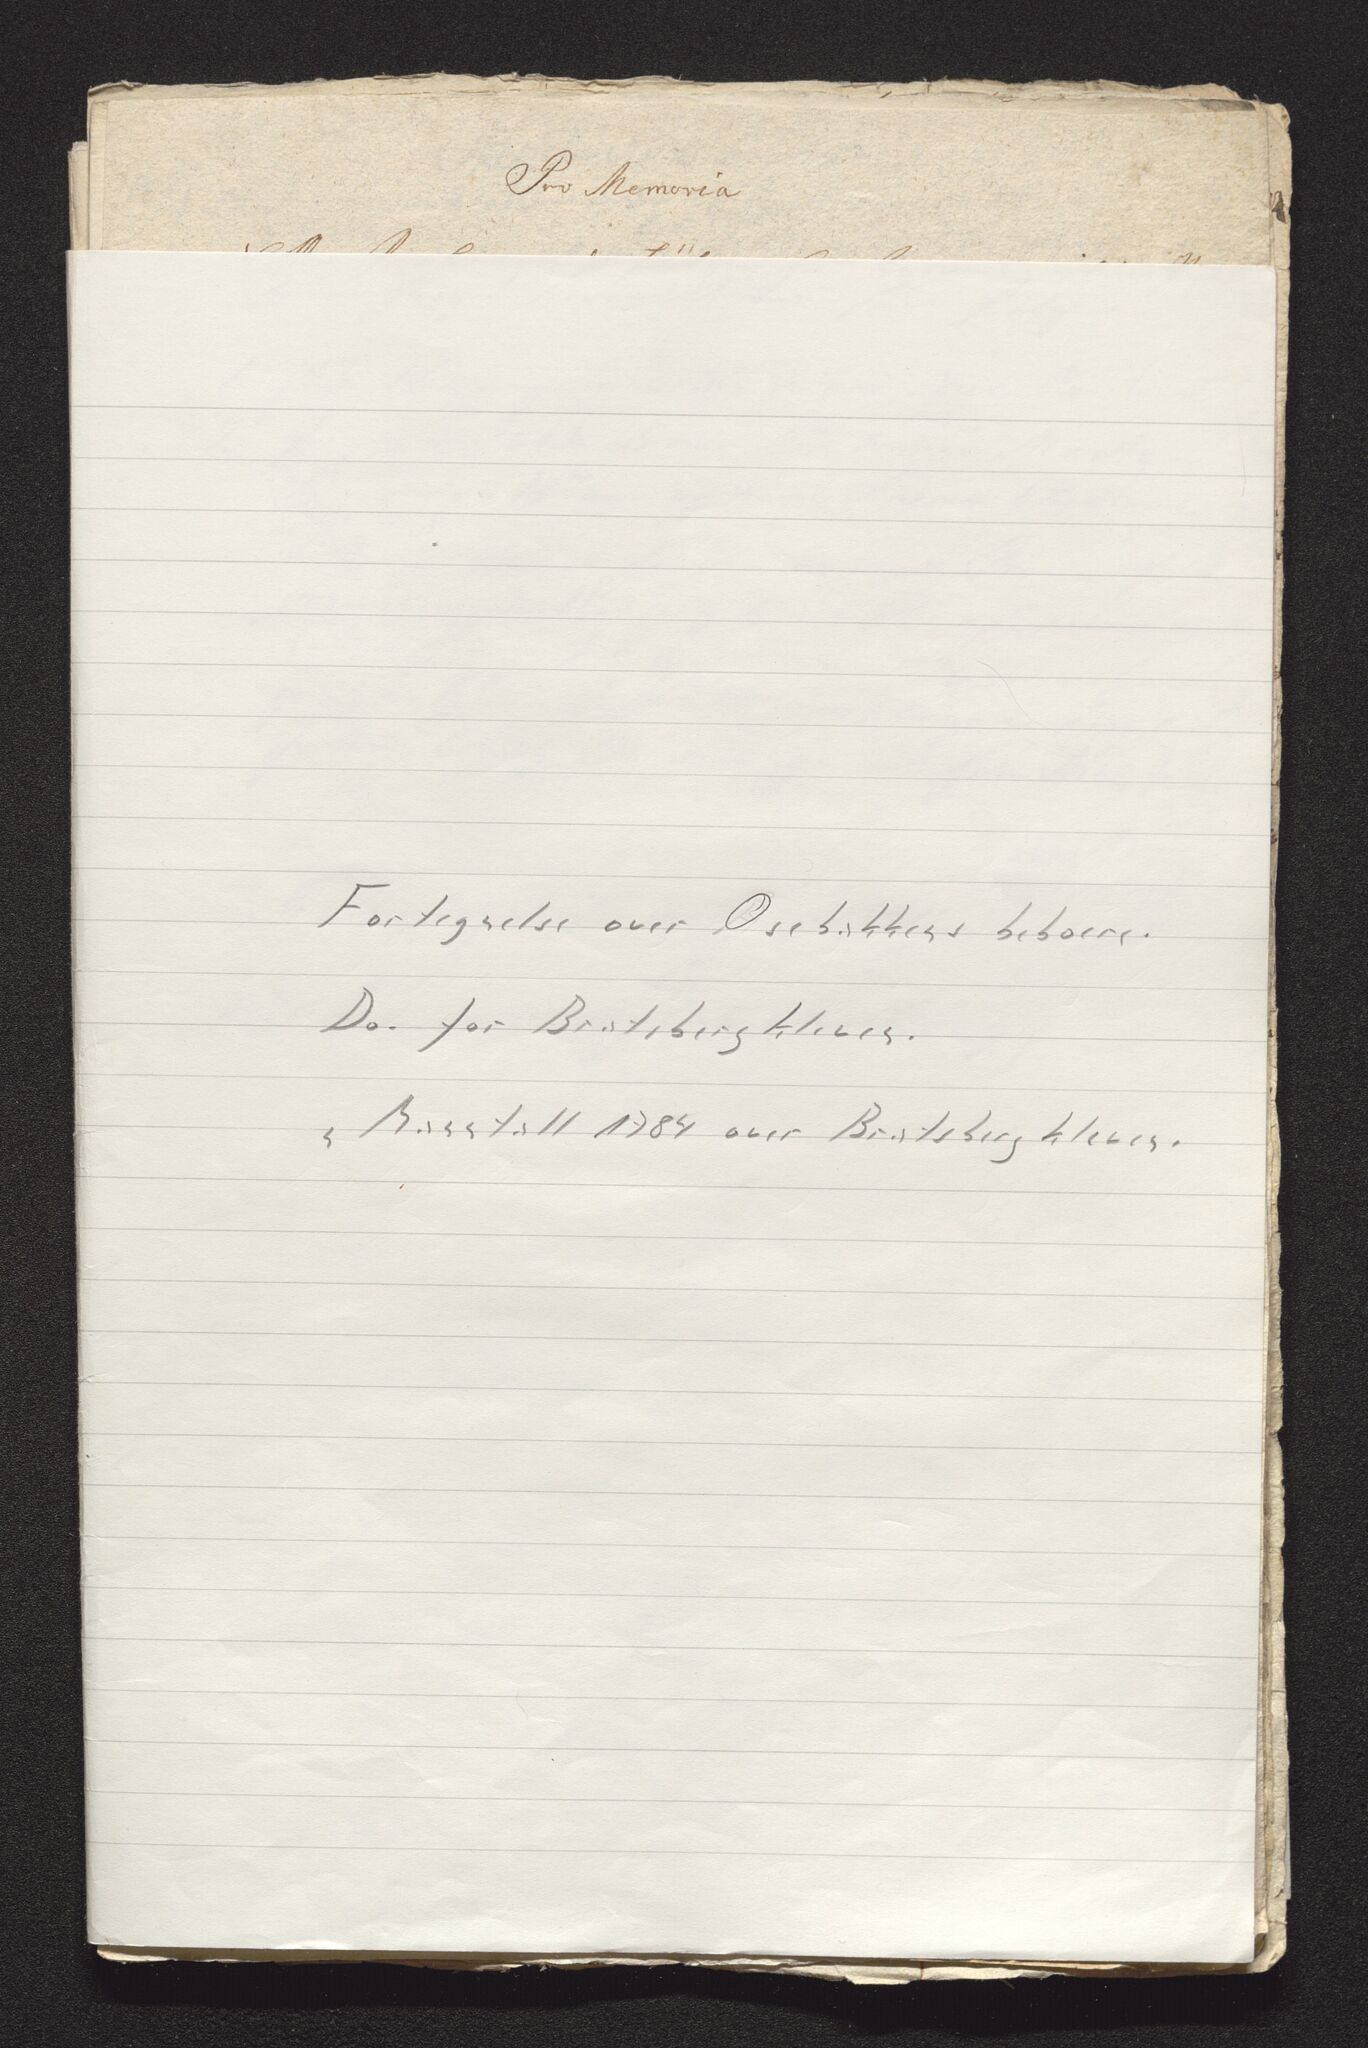 Pro Memoria
Fortegnelse over Osebakkens beboere.
Do. for Bratsbergkleven.
" Manntall 1784 over Bratsbergkleven.